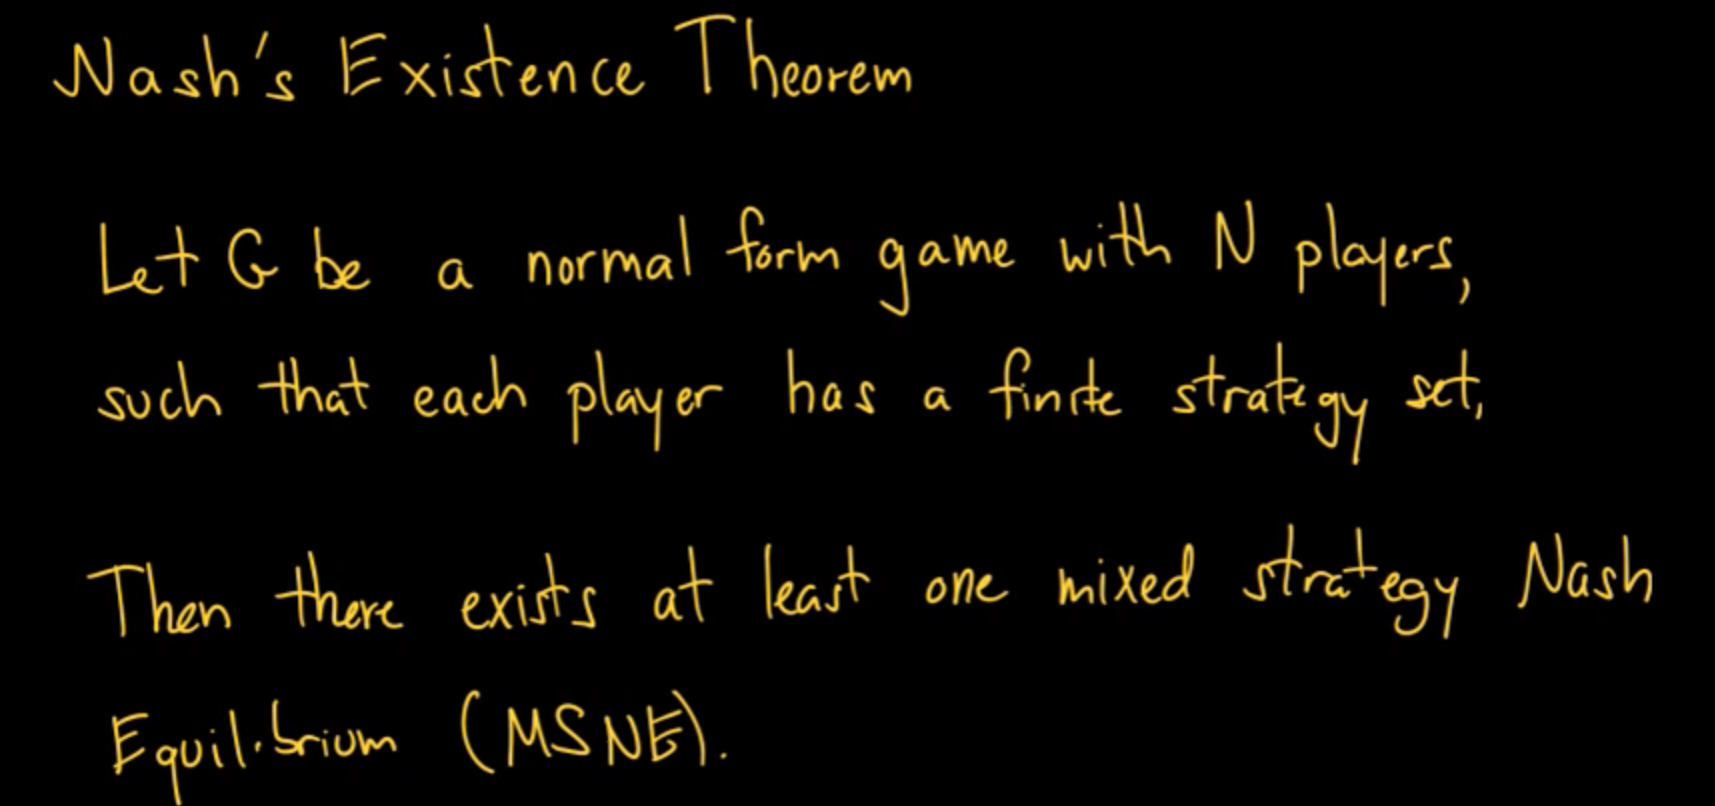 Nash's Existence Theorem
Let G be a normal form game with N players,
such that each player has a finite strategy set,
Then there exists at least one mixed strategy Nash
Equilibrium (MSNE).